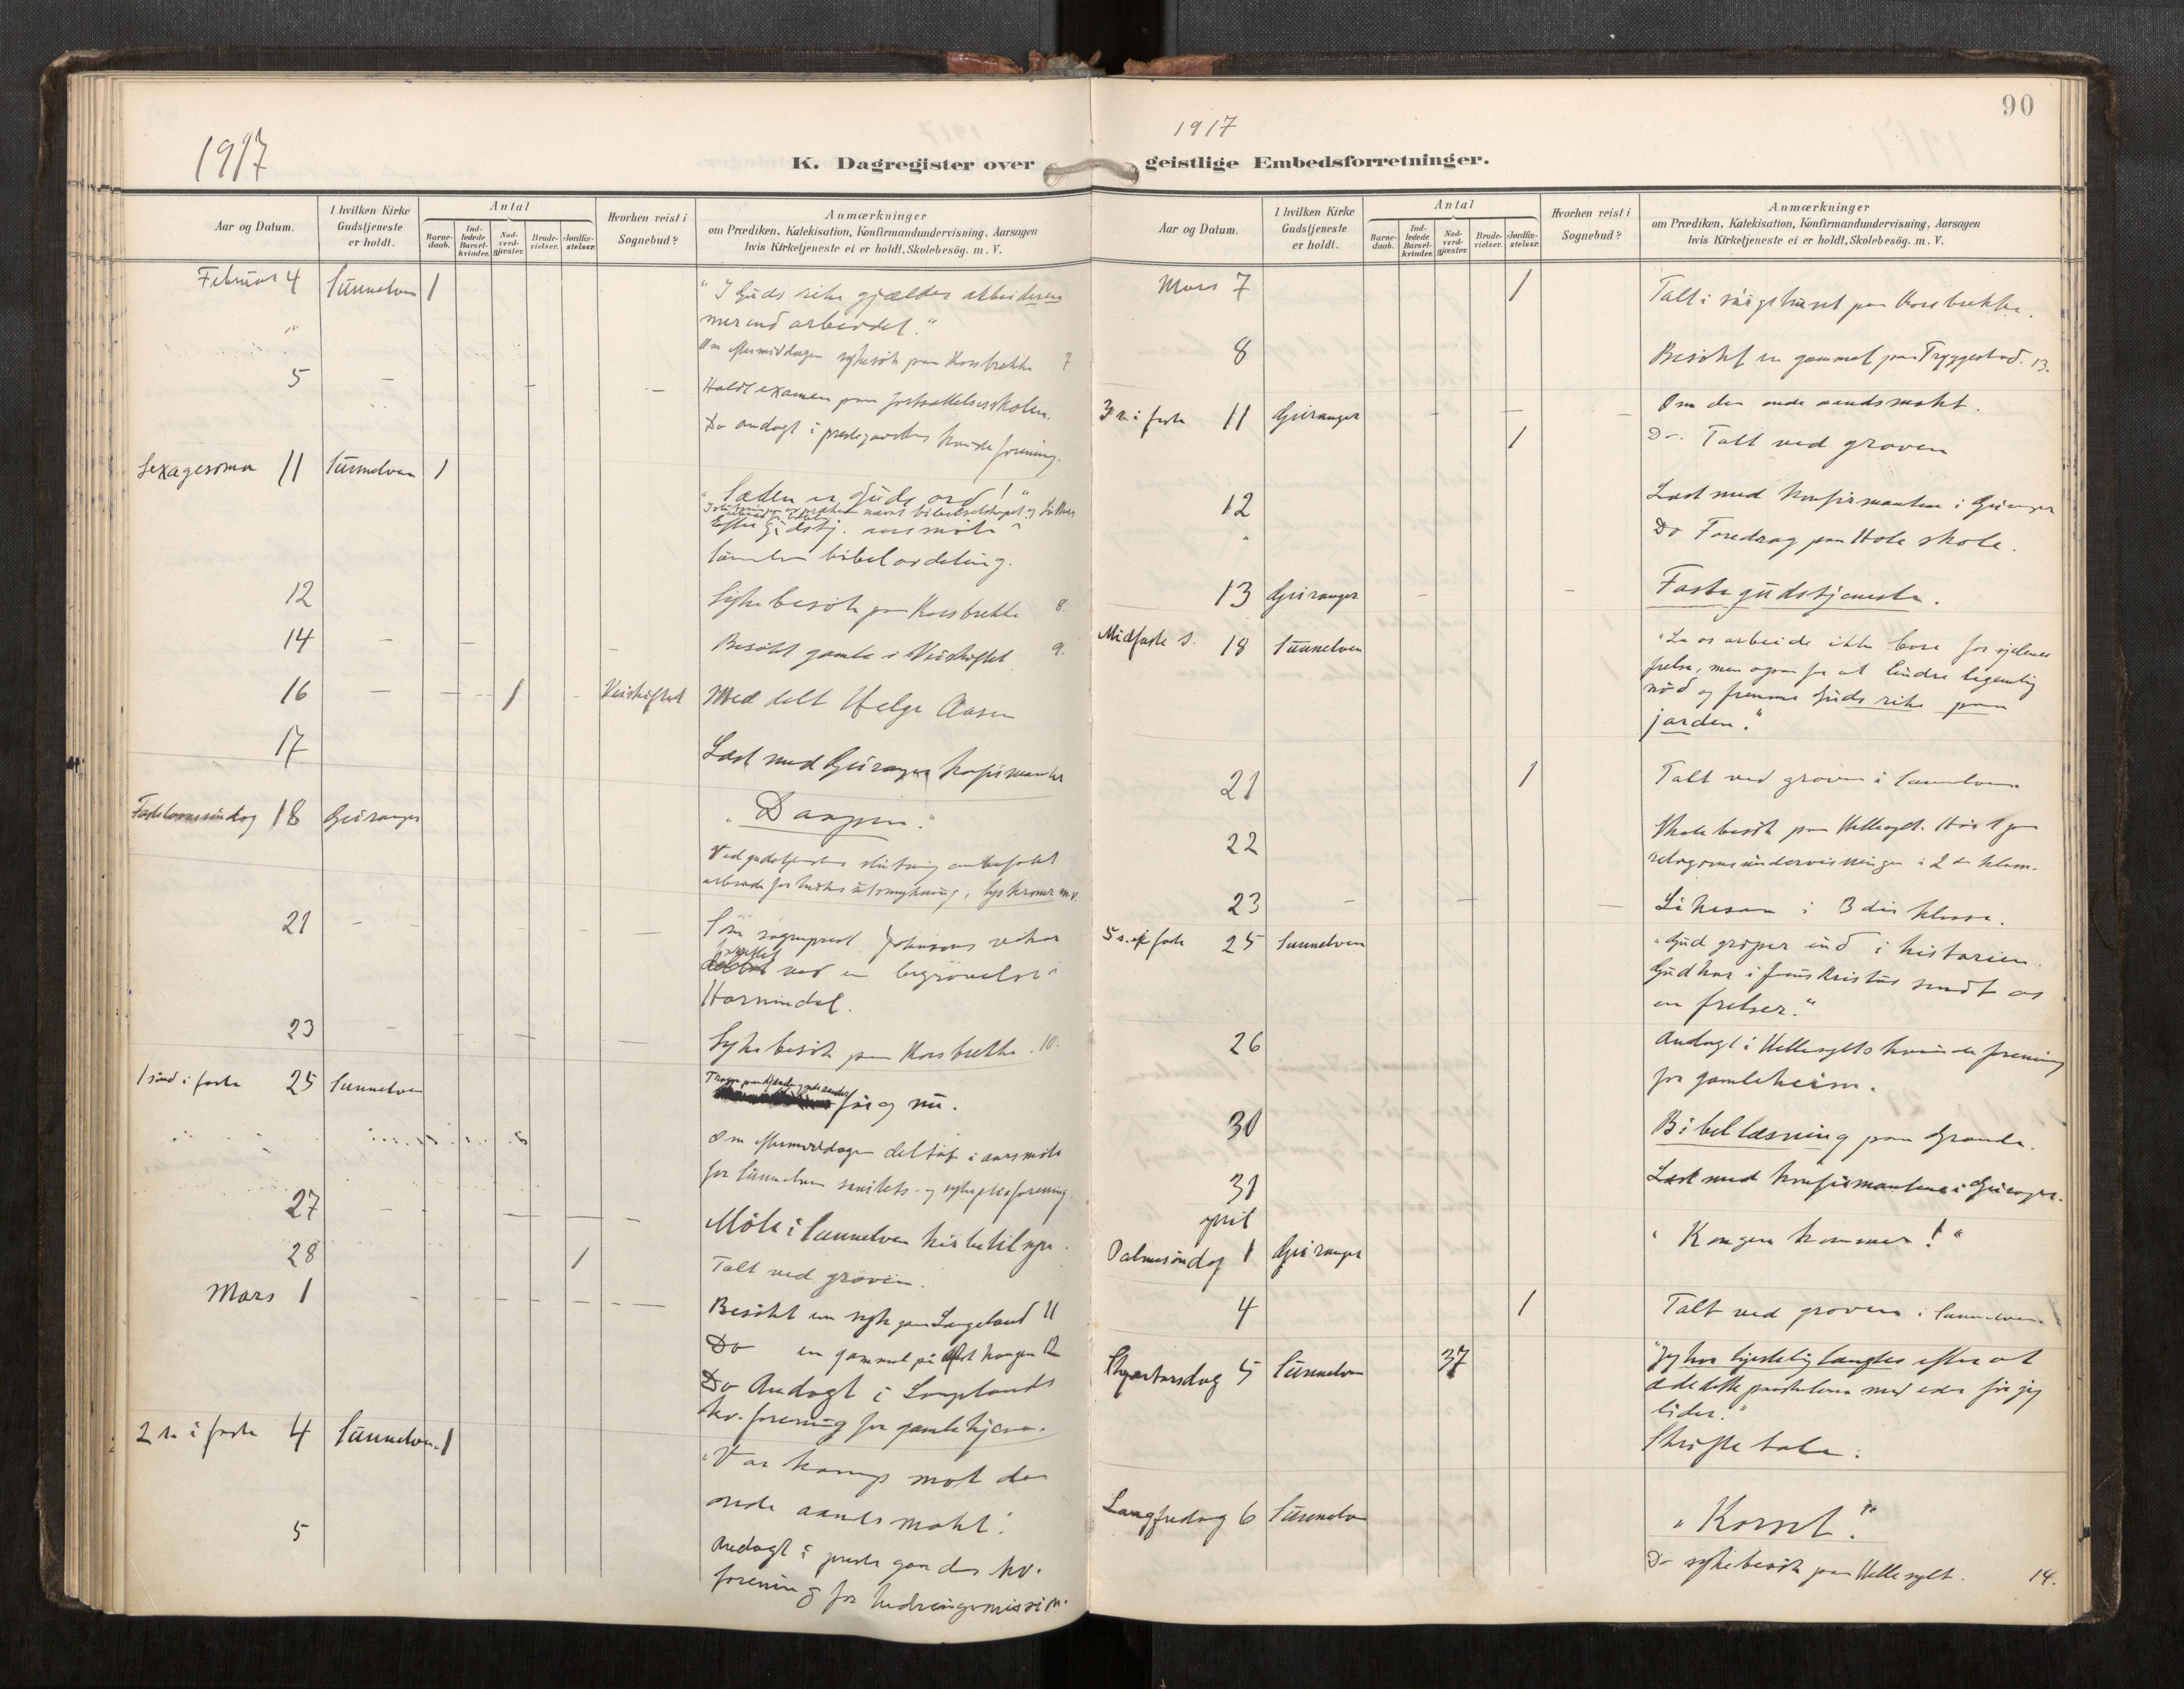 1917
K. Dagregister over
Aar og Datum.
I hvilken Kirke
Gudstjeneste
er holdt.
Antal
Barne-
daab.
Ind-
ledede
Barsel-
kvinder.
Nad-
verd-
gjester.
Brude-
vielser.
Jordfæ-
stelser.
Hvorhen reist i
Sognebud?
Anmærkninger
om Prædiken, Katekisation, Konfirmandundervisning, Aarsagen
hvis Kirketjeneste ei er holdt, Skolebesøg. m. V.
Februar 4 Sunnelven 1 "I Guds rike gjælder arbeideren
mer end arbeidet."
" Om eftermiddagen sykesök paa Korsbrekke 7
5 Holdt examen paa fortsættelsesskolen.
Do andagt i prestegaardens kvindeforening.
Sexagesima 11 Sunnelven 1 "Sæden er Guds ord!"
Efter Gudstj. aarsmöte i
Sunnelven bibelavdeling.
12 Sykebesök paa Korsbrekke 8.
14 Besökt gamle i Veiskiftet 9.
16 1 Veiskiftet Meddelt Helge Aasen
17 Læst med Geiranger konfirmanter
Fastelavnssöndag 18 Geiranger "Daapen."
Ved gudstjenestens slutning anbefalt
arbeide for kirkens utsmykning, lyskroner m.v.
21 Som sogneprest Johnsons vikar
forrettet ved en begravelse i
Hornindal.
23 Sykebesök paa Korsbrekke. 10.
1 sönd i faste 25 Sunnelven
för og nu.
Om eftermiddagen deltat i aarsmöte
for Sunnelven sanitets- og sykepleieforening.
27 Möte i Sunnelven kirketilsyn.
28 1 Talt ved graven.
Mars 1 Besökt en syk paa Langeland 11
Do en gammel på 12
Do Andagt i Langelands
kv. forening for gamlehjem.
2 s. i faste 4 Sunnelven 1 "Vor kamp mot den
onde aandsmakt."
5 Andagt i prestegaardens kv.
forening for hedningemission.
90
1917
geistlige Embedsforretninger.
Aar og Datum.
I hvilken Kirke
Gudstjeneste
er holdt.
Antal
Barne-
daab.
Ind-
ledede
Barsel-
kvinder.
Nad-
verd-
gjester.
Brude-
vielser.
Jordfæ-
stelser.
Hvorhen reist i
Sognebud?
Anmærkninger
om Prædiken, Katekisation, Konfirmandundervisning, Aarsagen
hvis Kirketjeneste ei er holdt, Skolebesøg. m. V.
Mars 7 1 Talt i sörgehuset paa Korsbrekke.
8 Besökt en gammel paa Tryggestad. 13.
3 s. i faste 11 Geiranger Om den onde aandsmakt.
1 Do. Talt ved graven
12 Læst med konfirmantene i Geiranger
" Do Foredrag paa Hole skole.
13 Geiranger Fastegudstjeneste.
Midfaste s. 18 Sunnelven "La os arbeide ikke bare for sjelenes
frelse, men ogsaa for at lindre legemlig
nöd og fremme Guds rike paa
jorden."
21 1 Talt ved graven i Sunnelven.
22 Skolebesök paa Hellesylt. Hört paa
religionsundervisningen i 2den klasse.
23 Likesaa i 3die klasse.
5 s. i faste 25 Sunnelven "Gud griper ind i historien.
Gud har i Jesus Kristus sendt os
en frelser."
26 Andagt i Hellesylts kvindeforening
for gamleheim.
30 Bibellæsning paa Grande.
31 Læst med konfirmantene i Geiranger.
april
Palmesöndag 1 Geiranger "Kongen kommer!"
4 1 Talt ved graven i Sunnelven.
Skjærtorsdag 5 Sunnelven 37 "Jeg har hjertelig længtes efter at
æte dette paaskelam med eder för jeg
lider."
Skriftetale.
Langfredag 6 Sunnelven "Korset."
Do sykebesök paa Hellesylt. 14.